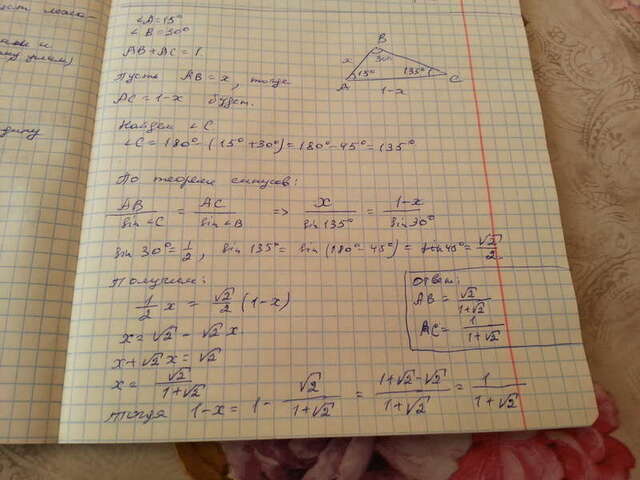 ∠A=15°
∠B=30°
AB+AC=1
Пусть AB=x, тогда
AC=1-x будет.
B
30°
x
15°
135°
A
C
1-x
Найдем ∠C
∠C=180°-(15°+30°)=180°-45°=135°
По теореме синусов:
AB/sin∠C = AC/sin∠B => x/sin135° = 1-x/sin30°
sin30°=1/2, sin135°=sin(180°-45°)=sin45°=√2/2
Получим:
1/2 x = √2/2 (1-x)
x=√2-√2x
x+√2x=√2
x=√2/1+√2
тогда 1-x=1-√2/1+√2=1+√2-√2/1+√2=1/1+√2
Ответ:
AB=√2/1+√2
AC=1/1+√2